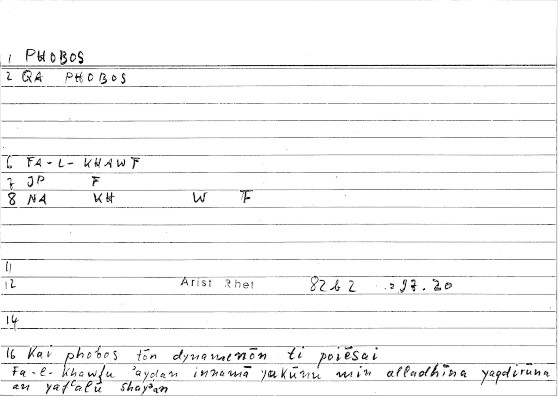 1 PHOBOS
2 QA PHOBOS
6 FA-L-KHAWF
7 JP F
8 NA KH W F
11
12 Arist Rhet 82b2 :97.20
14
16 Kai phobos tōn dynamenōn ti poiēsai
Fa-l-khawfu ʾayḍan innamā yakūnu min alladhīna yaqdirūna
an yafʿalū shayʾan